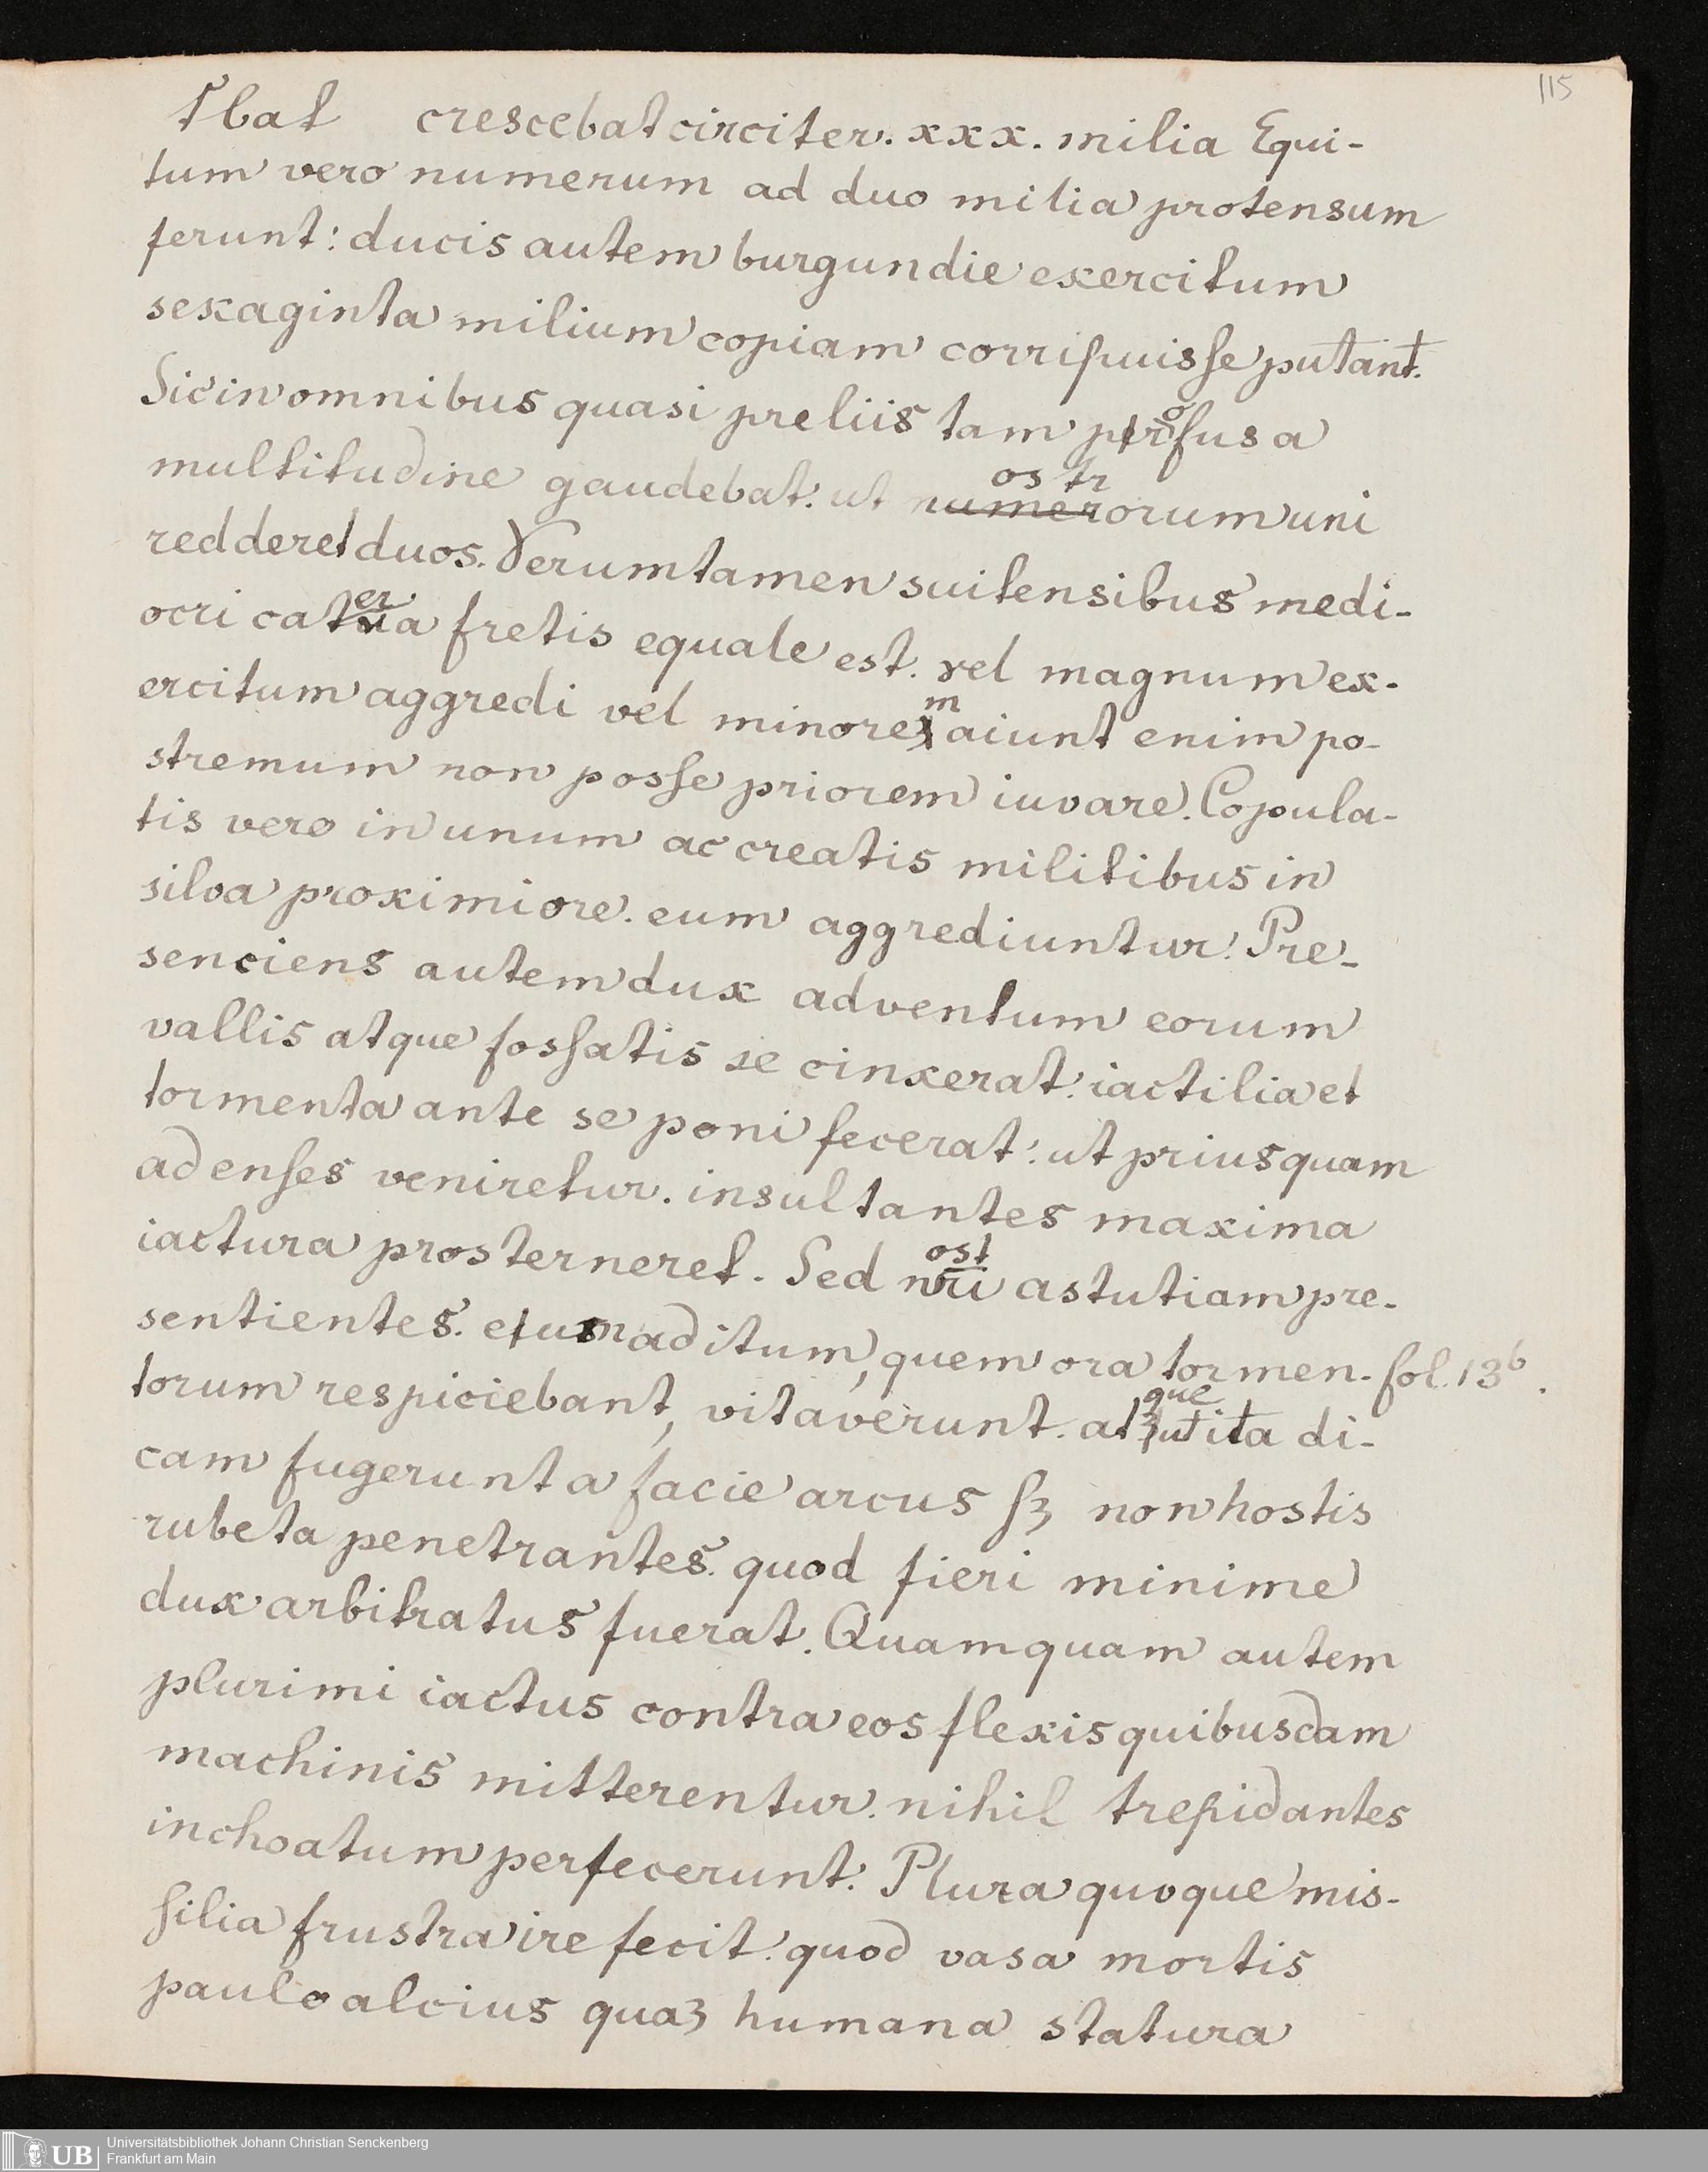 115
crescebat circiter. xxx. milia Equi-
tum vero numerum ad duo milia protensum
ferunt: ducis autem burgundie exercitum
sexaginta milium copiam corripuisse putant.
Sic in omnibus quasi preliis tam profusa
multitudine gaudebat: ut nostrorum uni
redderet duos. Verumtamen suitensibus medi-
ocri caterua fretis equale est. vel magnum ex-
ercitum aggredi vel minorem aiunt enim po-
stremum non posse priorem iuvare. Copula-
tis vero in unum ac creatis militibus in
silva proximiore. eum aggrediuntur. Pre-
senciens autem dux adventum eorum
vallis atque fossatis se cinxerat: iactilia et
tormenta ante se poni fecerat: ut priusquam
ad enses veniretur. insultantes maxima
iactura prosterneret. Sed nostri astutiam pre-
sentientes. eum aditum, quem ora tormen- fol. 13b.
torum respiciebant, vitaverunt. atque ut ita di-
cam fugerunt a facie arcus sꝫ non hostis
rubeta penetrantes. quod fieri minime
dux arbitratus fuerat. Quamquam autem
plurimi iactus contra eos flexis quibusdam
machinis mitterentur. nihil trepidantes
inchoatum perfecerunt. Plura quoque mis-
silia frustra ire fecit. quod vasa mortis
paulo alcius quaꝫ humana statura
UB
Universitätsbibliothek Johann Christian Senckenberg
Frankfurt am Main